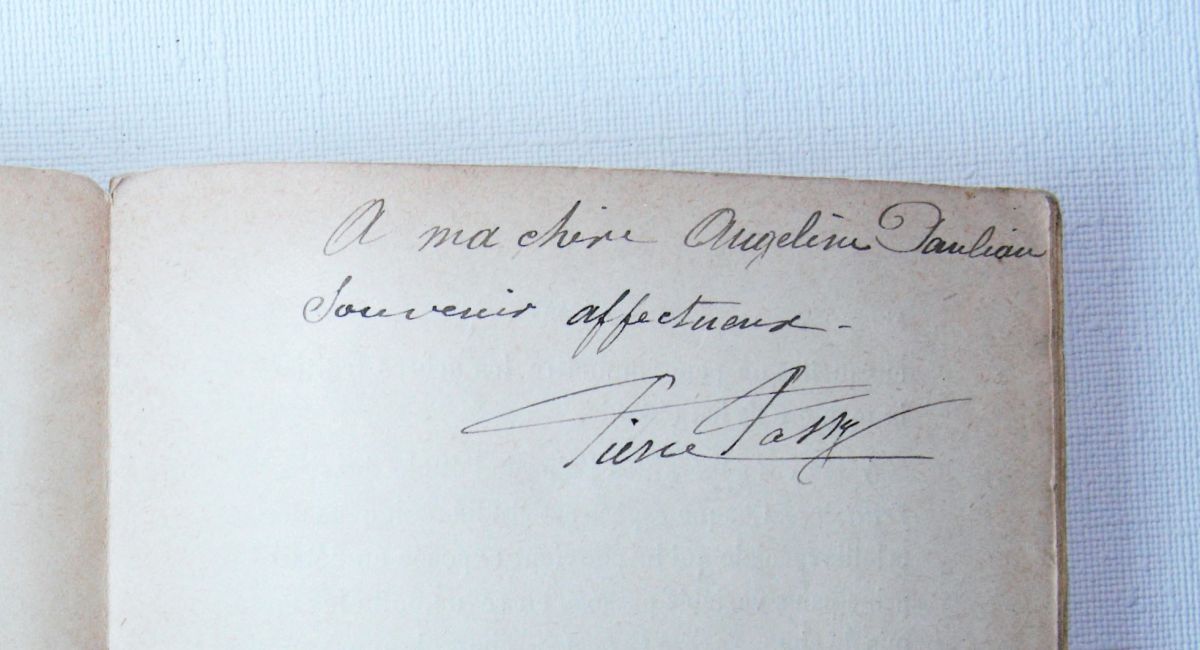 A ma chère Angeline Paulian
Souvenir affectueux -
Pierre Passy